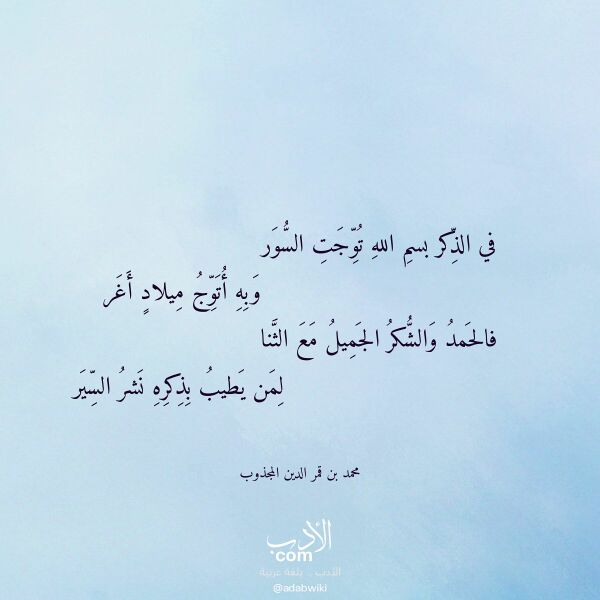 في الذِّكر بسمِ اللهِ تُوِّجَتِ السُّوَر
وَبِهِ أُتَوِّجُ مِيلادٍ أَغَر
فالحَمدُ وَالشُّكرُ الجَمِيلُ مَعَ الثَّنا
لِمَن يَطيبُ بِذِكرِهِ نَشرُ السِّيَر
محمد بن قمر الدين المجذوب
الأدب
com
الأدب .. بلغة عربية
@adabwiki